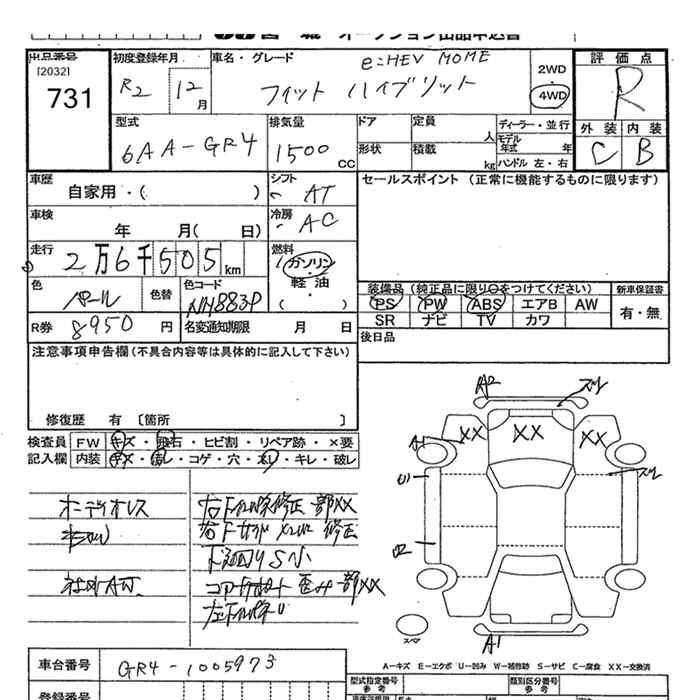 宮城 オークション出品申込書
出品番号 初度登録年月 車名・グレード e:HEV HOME 評価点
[2032]
731 R2 12月 フィット ハイブリット 2WD 4WD R
型式 6AA-GR4 排気量 1500 CC ドア 定員 人 ディーラー・並行 外装 内装
形状 積載 kg モデル年式 年 ハンドル 左・右 C B
車歴 自家用・( ) シフト AT セールスポイント (正常に機能するものに限ります)
車検 年 月( 日) 冷房 AC
走行 2万6千505km 燃料 ガソリン・軽油・( )
色 パール 色替 色コード NH883P 装備品 (純正品に限り○をつけてください) 新車保証書
PS PW ABS エアB AW 有・無
SR ナビ TV カワ
R券 8950円 名変通知期限 月 日 後日品
注意事項申告欄 (不具合内容等は具体的に記入して下さい)
修復歴 有 〔箇所 〕
検査員 FW キズ・飛石・ヒビ割・リペア跡・×要
記入欄 内装 キズ・汚レ・コゲ・穴・スレ・キレ・破レ
オーディオレス
社外AW
A2
A1 XX XX XX
U1
U2
A1
スペア
A-キズ E-エクボ U-凹み W-補修跡 S-サビ C-腐食 XX-交換済
車台番号 GR4-1005973
型式指定番号 参考 類別区分番号 参考
登録番号